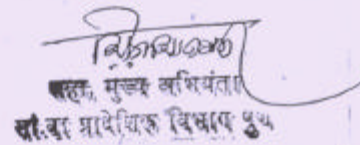 सहा, मुख्य अभियंता
सा.बां प्रादेशिक विभाग पुणे